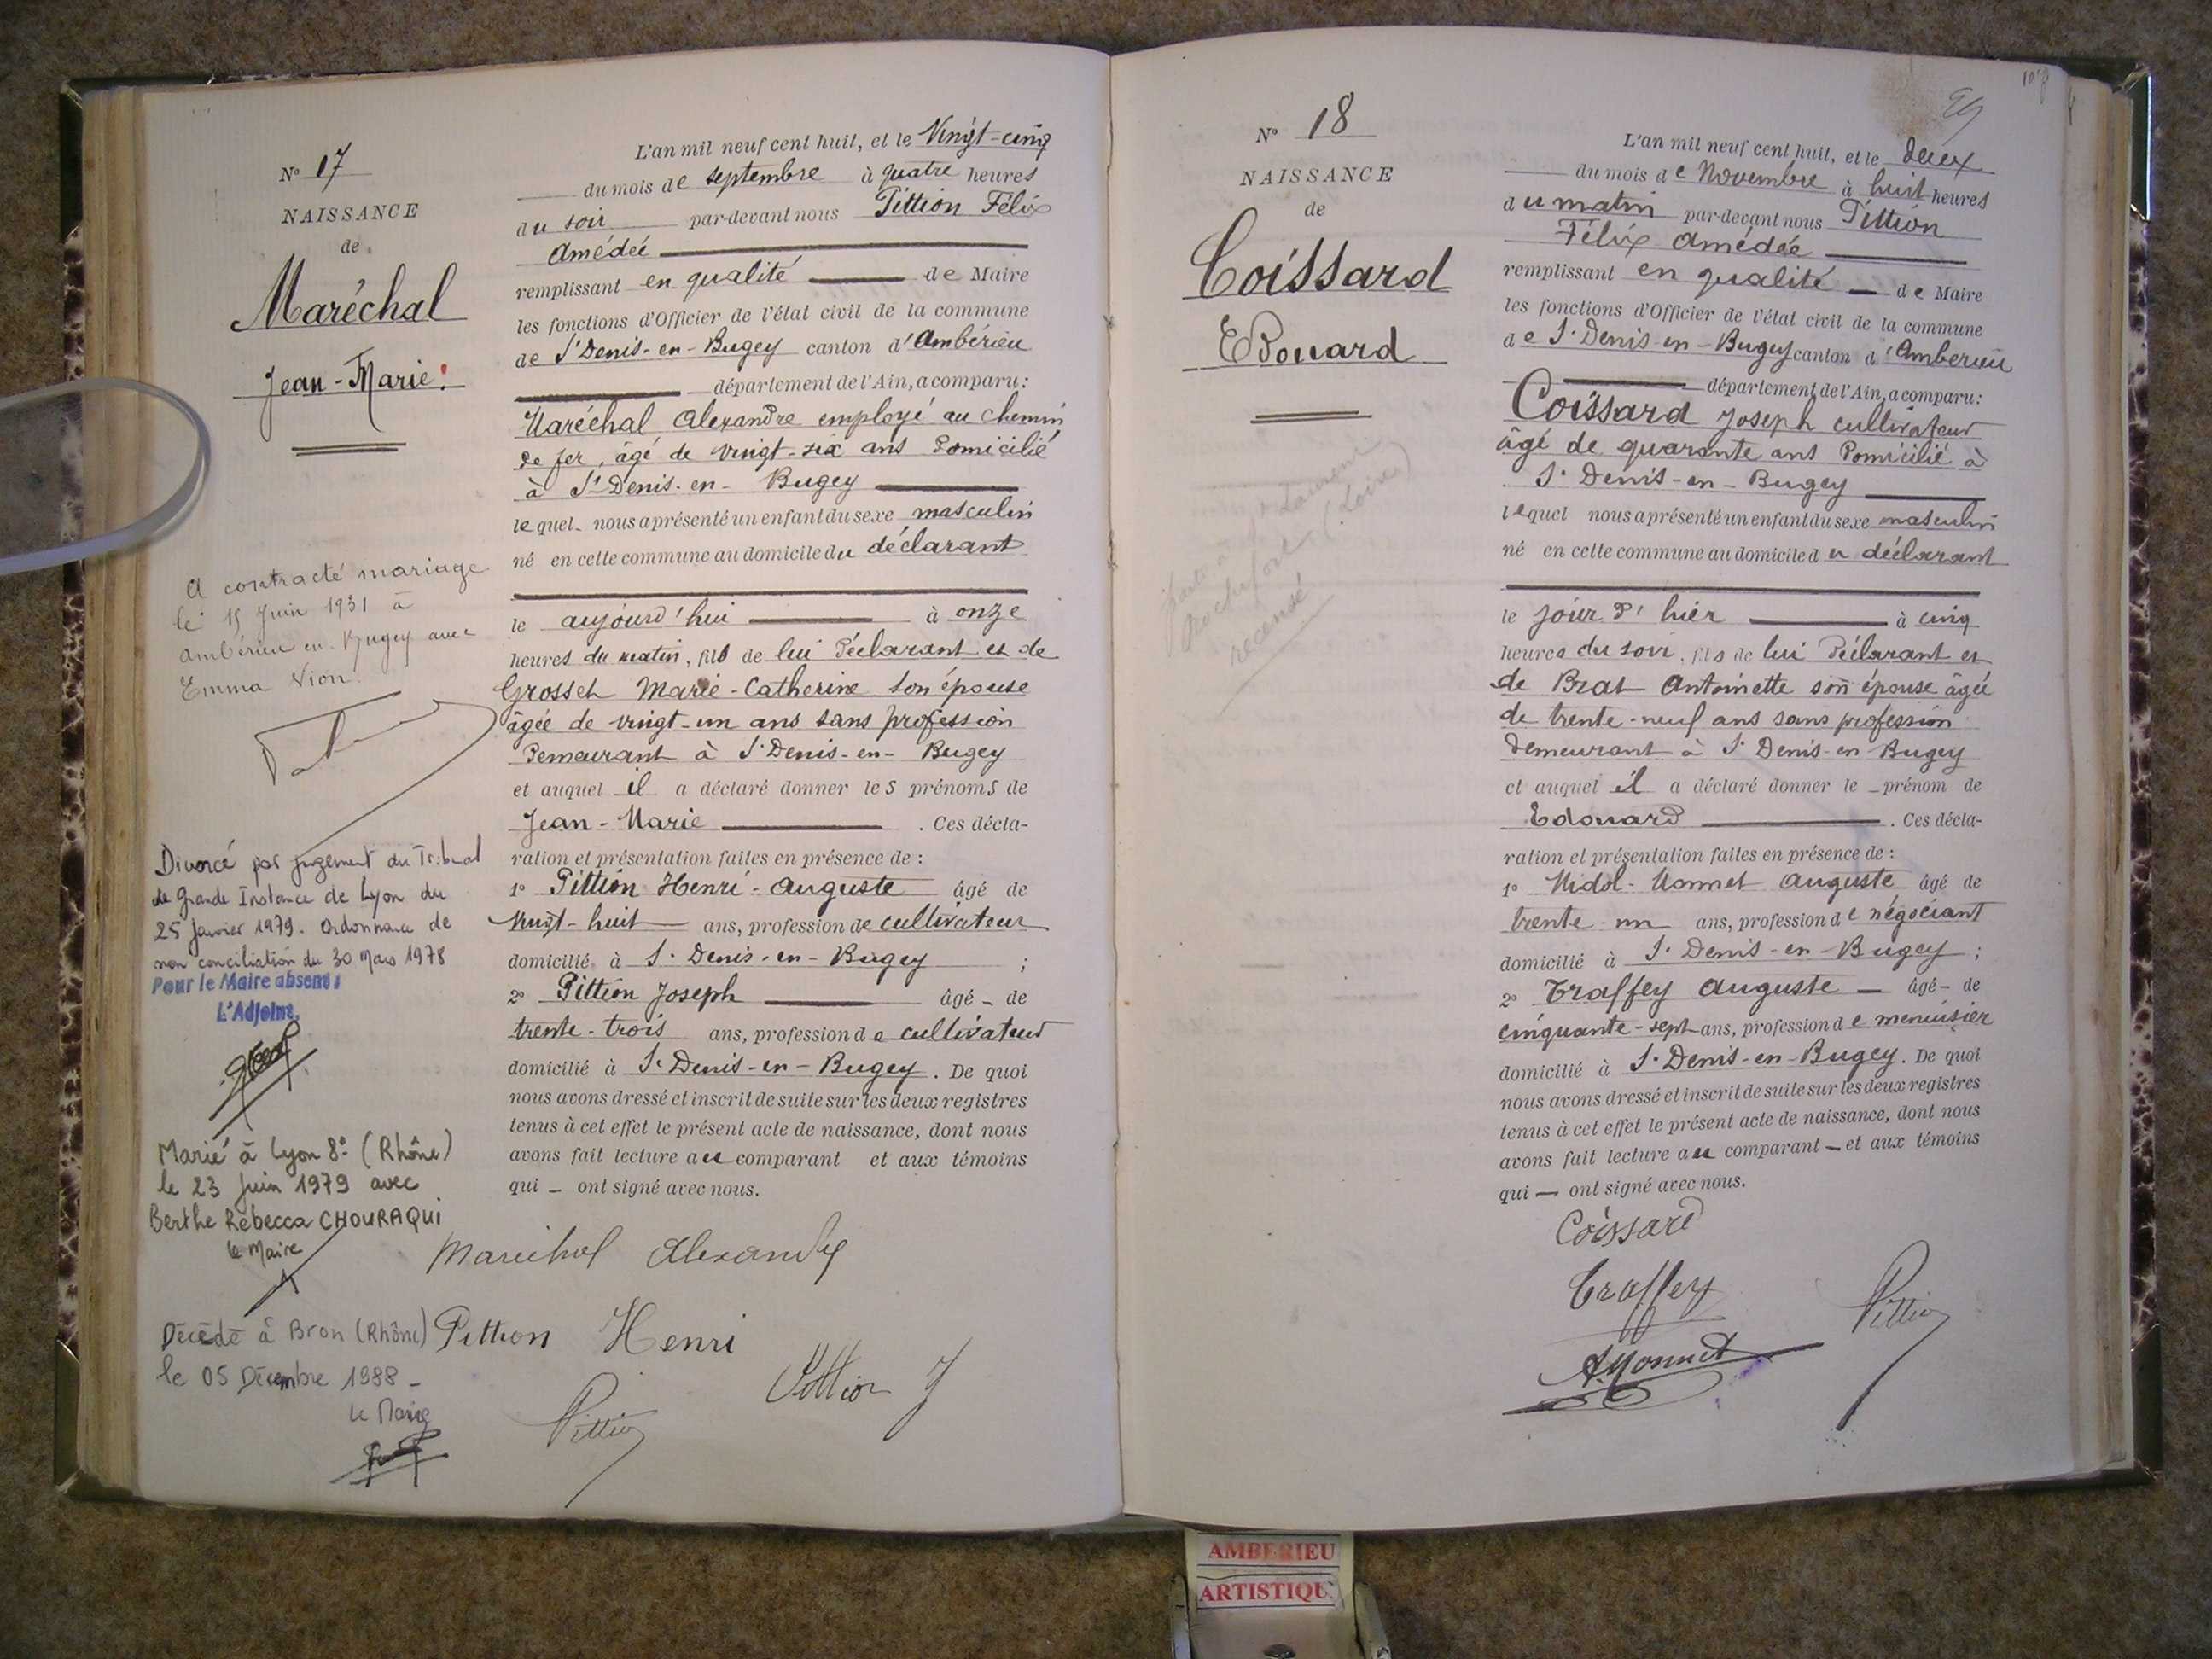 N° 17
NAISSANCE
de
Maréchal
Jean-Marie.
A contracté mariage
le 15 Juin 1931 à
Ambérieu en Bugey avec
Emma Vion.
Divorcé par jugement du Tribunal
de Grande Instance de Lyon du
25 janvier 1979. Ordonnance de
non conciliation du 30 Mars 1978
Pour le Maire absent:
L'Adjoint,
Marié à Lyon 8e (Rhône)
le 23 Juin 1979 avec
Berthe Rebecca CHOURAQUI
le Maire
Décédé à Bron (Rhône)
le 05 Décembre 1988 -
le Maire
L'an mil neuf cent huit, et le Vingt-cinq
du mois de septembre à quatre heures
du soir par-devant nous Pittion Félix
Amédée
remplissant en qualité de Maire
les fonctions d'Officier de l'état civil de la commune
de St Denis-en-Bugey canton d'Ambérieu
département de l'Ain, a comparu:
Maréchal Alexandre employé au chemin
de fer, âgé de vingt-six ans domicilié
à St Denis-en-Bugey
lequel nous a présenté un enfant du sexe masculin
né en cette commune au domicile du déclarant
le aujourd'hui à onze
heures du matin, fils de lui déclarant et de
Grosset Marie-Catherine son épouse
âgée de vingt-un ans sans profession
demeurant à St Denis-en-Bugey
et auquel il a déclaré donner les prénoms de
Jean-Marie . Ces décla-
ration et présentation faites en présence de :
1° Pittion Henri-Auguste âgé de
vingt-huit ans, profession de cultivateur
domicilié à St Denis-en-Bugey ;
2° Pittion Joseph âgé - de
trente-trois ans, profession de cultivateur
domicilié à St Denis-en-Bugey. De quoi
nous avons dressé et inscrit de suite sur les deux registres
tenus à cet effet le présent acte de naissance, dont nous
avons fait lecture au comparant et aux témoins
qui — ont signé avec nous.
Maréchal Alexandre
Pittion Henri
Pittion J
Pittion
N° 18
NAISSANCE
de
Coissard
Edouard
St Laurent
Rochefort (Loire)
recensé
29
L'an mil neuf cent huit, et le deux
du mois de Novembre à huit heures
du matin par-devant nous Pittion
Félix Amédée
remplissant en qualité — de Maire
les fonctions d'Officier de l'état civil de la commune
de St Denis-en-Bugey canton d'Ambérieu
département de l'Ain, a comparu:
Coissard Joseph cultivateur
âgé de quarante ans domicilié à
St Denis-en-Bugey
lequel nous a présenté un enfant du sexe masculin
né en cette commune au domicile du déclarant
le jour d'hier à cinq
heures du soir, fils de lui déclarant et
de Brat Antoinette son épouse âgée
de trente-neuf ans sans profession
demeurant à St Denis-en-Bugey
et auquel il a déclaré donner le - prénom de
Edouard . Ces décla-
ration et présentation faites en présence de :
1° Midol-Monnet Auguste âgé de
trente-un ans, profession de négociant
domicilié à St Denis-en-Bugey ;
2° Traffey Auguste — âgé - de
cinquante-sept ans, profession de menuisier
domicilié à St Denis-en-Bugey. De quoi
nous avons dressé et inscrit de suite sur les deux registres
tenus à cet effet le présent acte de naissance, dont nous
avons fait lecture au comparant — et aux témoins
qui — ont signé avec nous.
Coissard
Traffey
Pittion
A. Monnet
AMBERIEU
ARTISTIQU